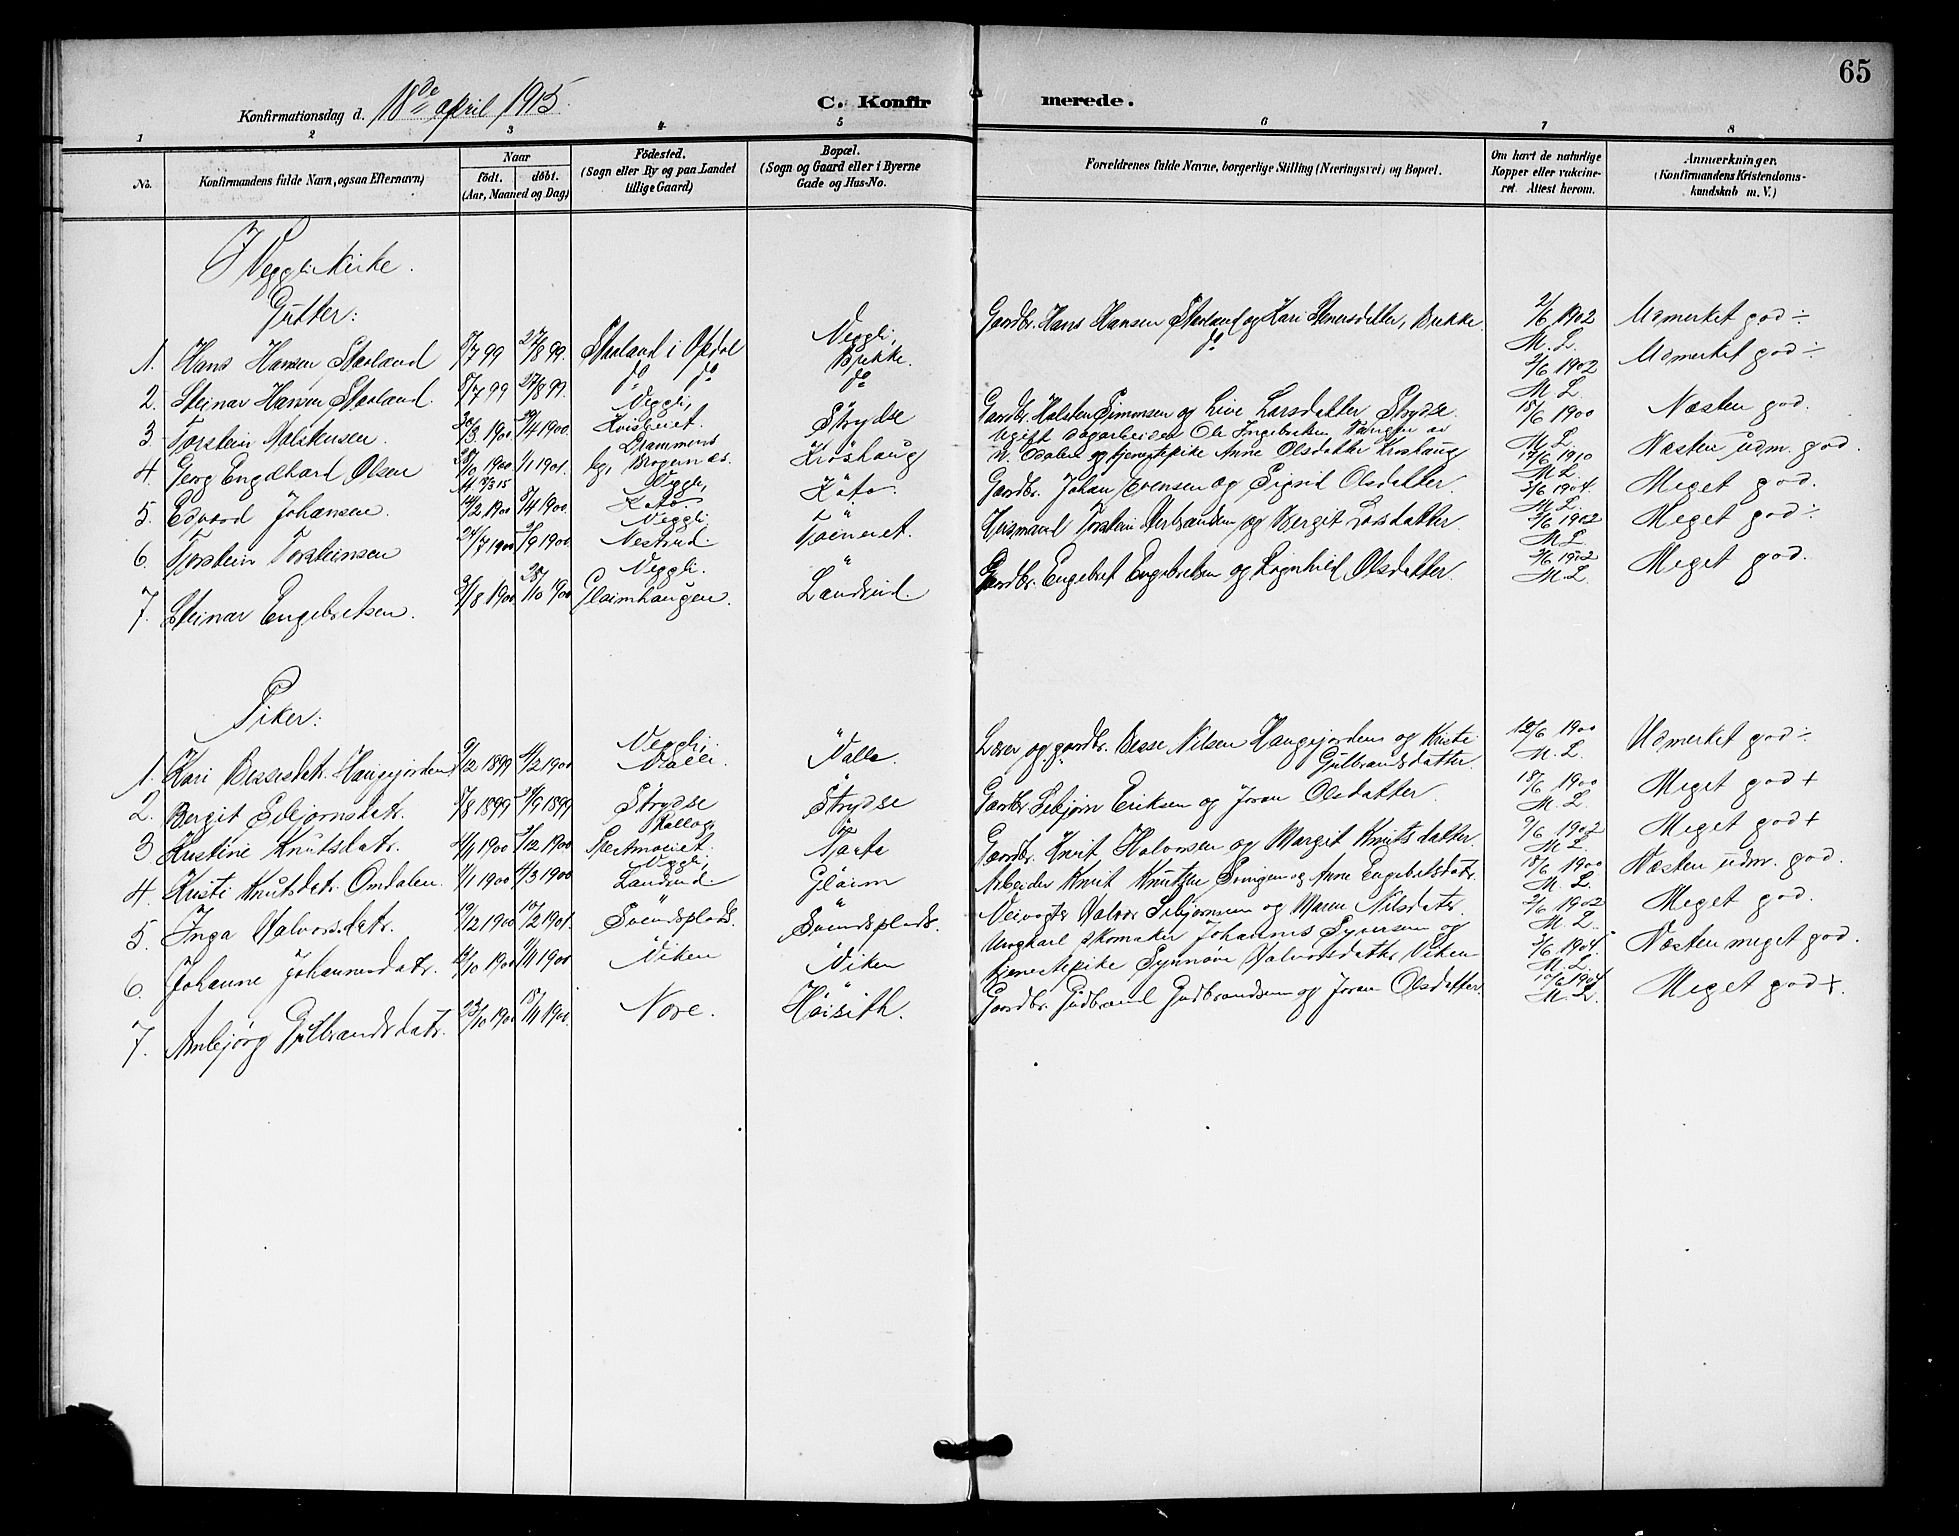 65
Konfirmationsdag d. 18de april 1915.
C. Konfirmerede.
1 2 3 4 5 6 7 8
No.
Konfirmandens fulde Navn, (ogsaa Efternavn)
Naar
födt. döbt.
(Aar, Maaned og Dag)
Födested.
(Sogn eller By og paa Landet
tillige Gaard)
Bopæl.
(Sogn og Gaard eller i Byerne
Gade og Hus-No.
Forældrenes fulde Navne, borgerlige Stilling (Næringsvei) og Bopæl.
Om havt de naturlige
Kopper eller vakcine-
ret. Attest herom.
Anmærkninger.
(Konfirmandens Kristendoms-
kundskab m. V.)
I Veggli Kirke.
Gutter:
1. Hans Hansen Skarland 5/7 99 27/8 99. Skarland i Opdal Veggli, Brekke. Gardbr. Hans Hansen Skarland og Kari Stenersdatter, Brekke 2/6 1902 M. L. Udmerket god ÷
2. Steinar Hansen Skarland. 5/7 99 27/8 99. do do do do 2/6 1902 M L Udmerket god ÷
3 Torstein Halstensen. 30/3 1900 29/4 1900. Veggli, Strydse Gardbr. Halsten Simonsen og Live Larsdatter Strydse 15/6 1900 M. L. Næsten god.
4 Georg Engelhart Olsen 1900 1/1 1901. Drammens Bragernæs. Kroshaug Ugift dagarbeider Ole Ingebretsen av
N. Odalen og tjenestepike Anne Olsdatter Kroshaug 1910 M L Næsten udm. god
5. Edvard Johansen. 14/2 1900 8/4 1900. Veggli, Kato. Kato. Gardbr. Johan Evensen og Sigrid Olsdatter 3/6 1904. M. L. Meget god.
6 Torstein Torsteinsen 24/7 1900 2/9 1900. Veggli. Nestrud. Husmand Torstein og Bergit Larsdatter 2/6 1902 M L. Meget god ÷
7. Steinar Engebretsen. 3/8 1900 1900 Veggli. Glaimhaugen. Landrud. Gardbr. Engebret Engebretsen og Ragnhild Olsdatter. 2/6 1902 M. L Meget god.
Piker:
1. Kari Bessesdatr. Haugejorden 9/12 1899 4/2 1900 Veggli, Valle Valle Lærer og gardbr. Besse Nilsen Haugejorden og Kristi
Gulbrandsdatter. 12/6 1900 M. L Udmerket god ÷
2. Bergit Sebjørnsdatr. 5/8 1899 24/9 1899 Strydse Strydse Gardbr. Sebjørn Eriksen og Joran Olsdatter 18/6 1900 M. L. Meget god +
3 Kristine Knutsdatr. 1900 1900 Rollag, Gardbr. Knut Halvorsen og Margit Knutsdatter. 2/6 1902 M L. Meget god +
4. Kristi Knutsdatr. Omdalen. 1/1 1900 4/3 1900 Veggli, Landrud. Glaim Arbeider Knut Knutsen Svingen og Anne Engebretsdatr. 18/6 1900 M. L. Næsten udm. god.
5. Inga Halvorsdatr. 19/12 1900 10/2 1901. Svendsplads. Svendsplads. Veivogter Halvor Sebjørnsen og Maren Nilsdatr. 2/6 1902 M. L. Meget god.
6. Johanne Johannesdatr. 1900 1900 Viken Viken Ungkarl skomaker Johannes Syversen og
tjenestepike Synnøve Halvorsdatter Viken 3/6 1904. M. L. Næsten meget god.
7. Anbjørg Gulbrandsdatr. 22/10 1900 18/11 1900. Nore. Høisæth. Gardbr. Gudbrand Gudbrandsen og Joran Olsdatter. 1904 M. L. Meget god +.